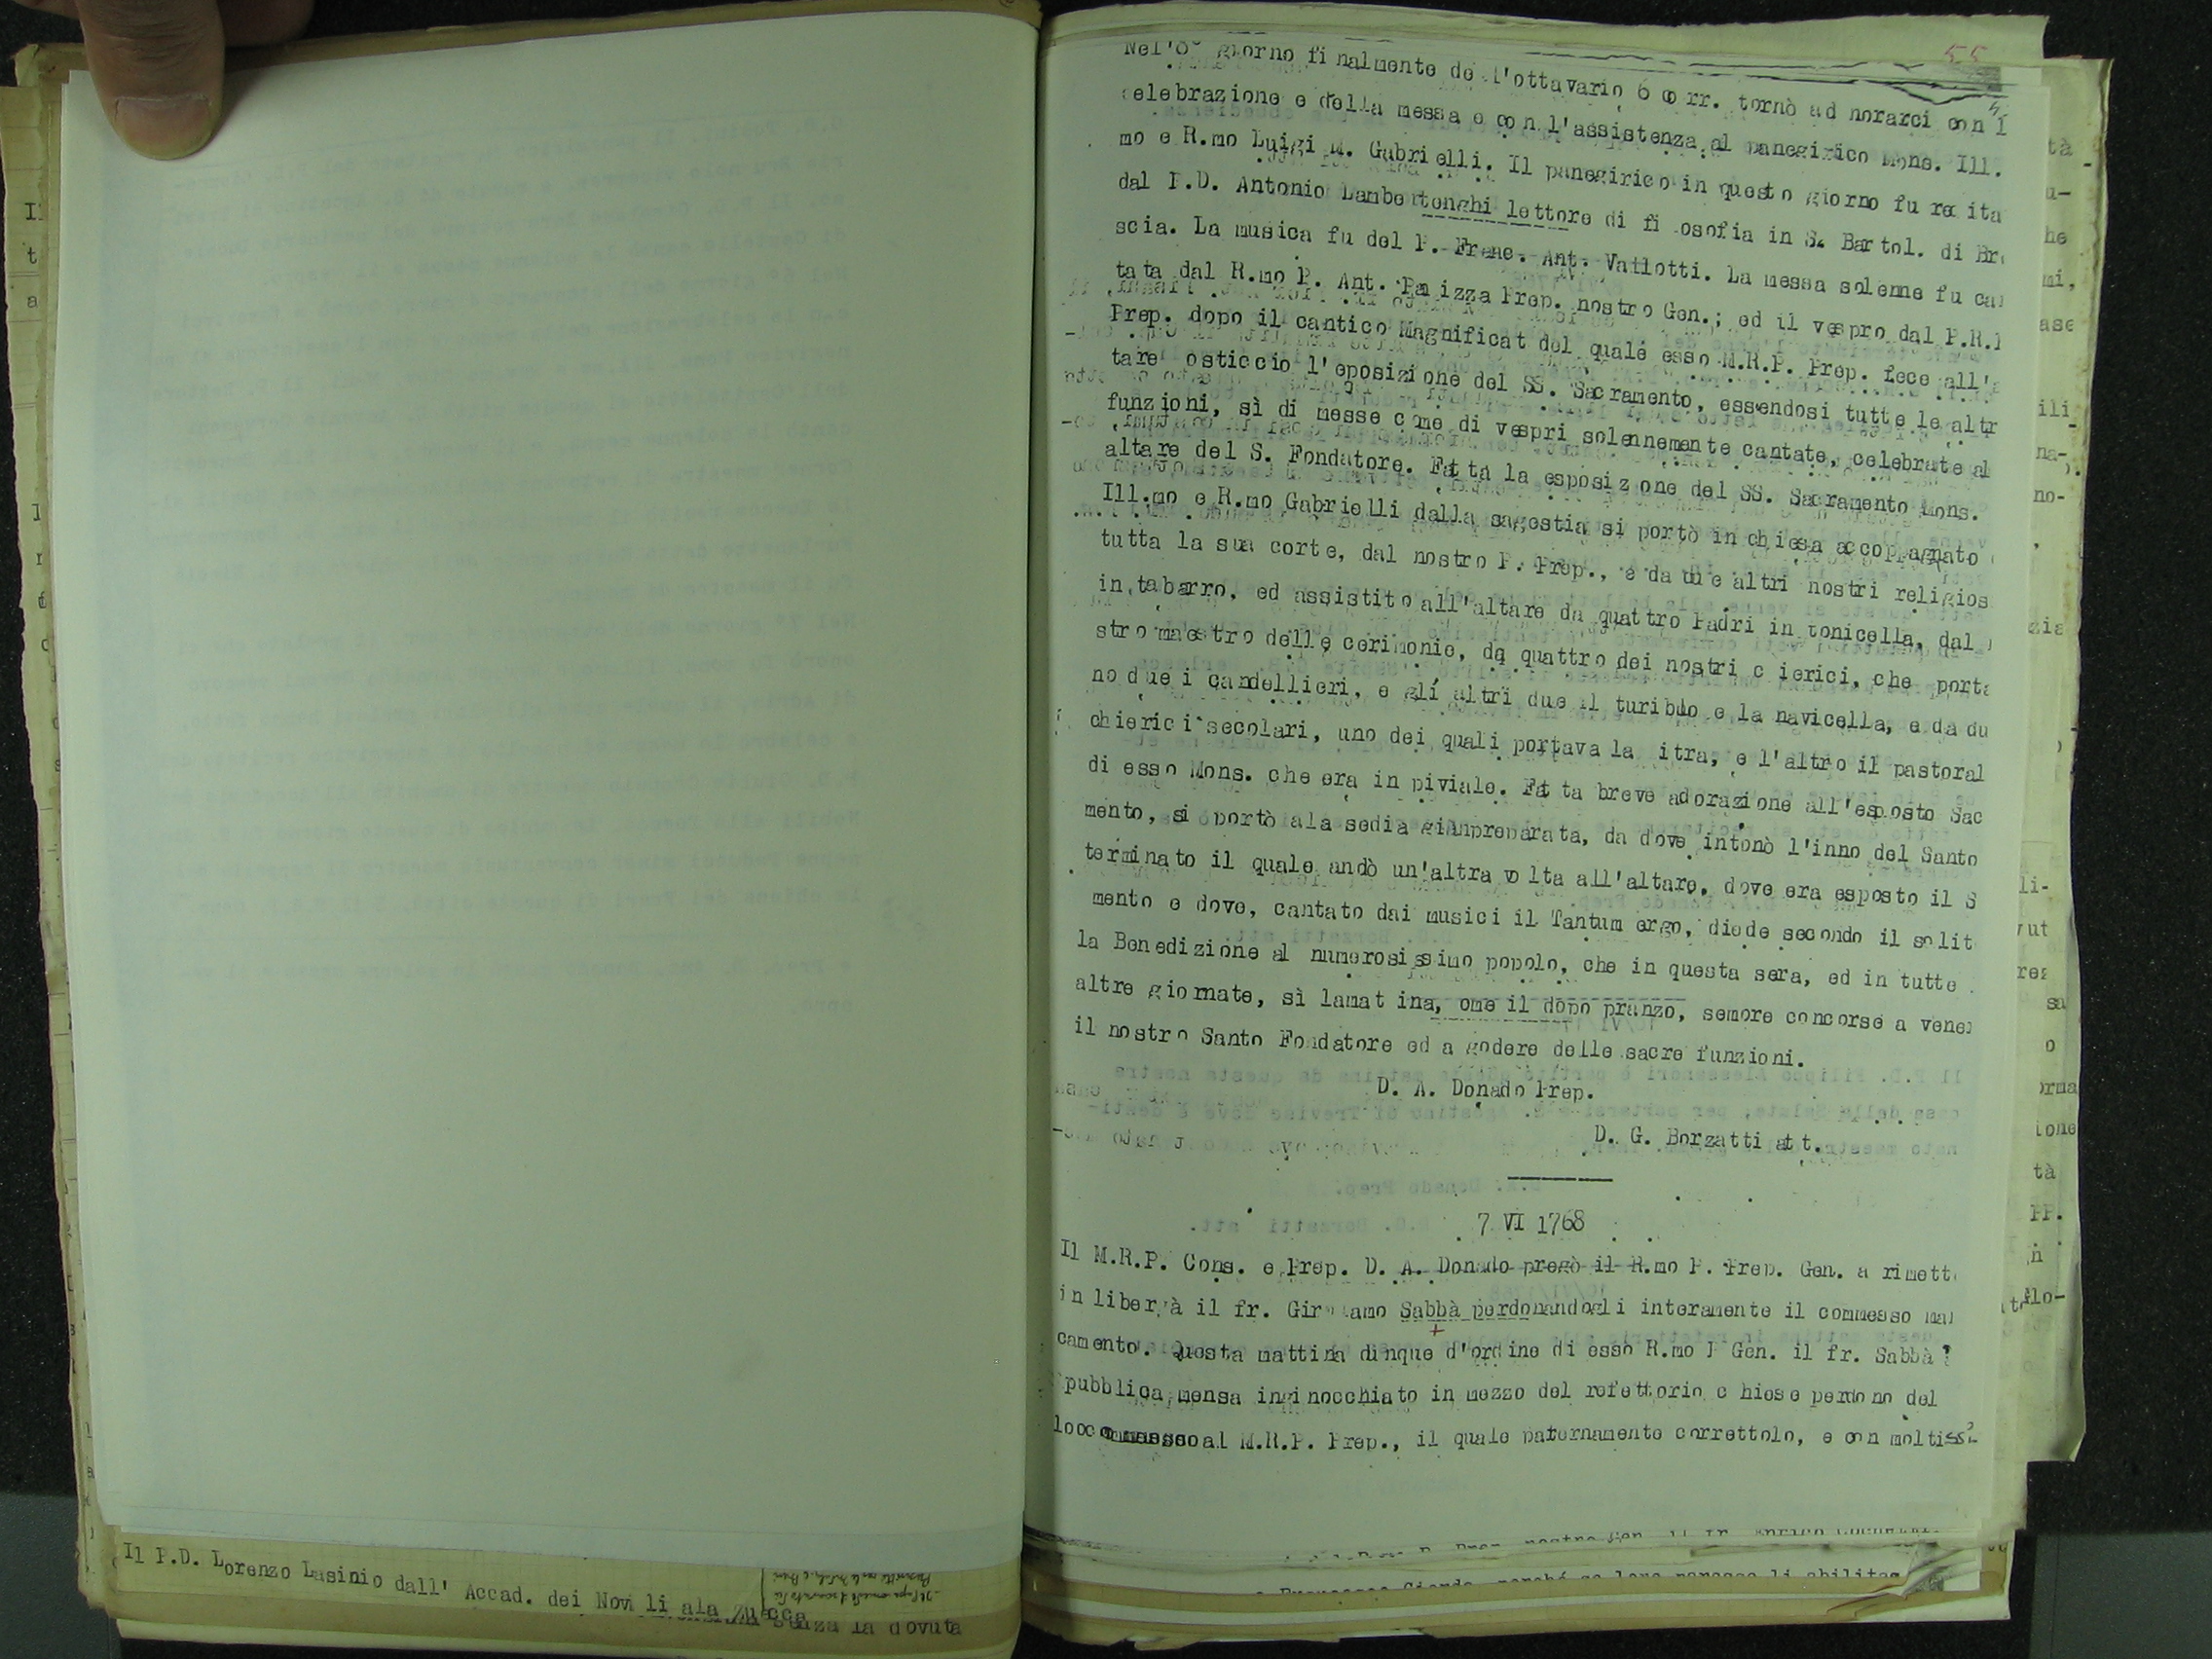 55
Nel'8° giorno finalmente dell'ottavario, 6 corr. tornò ad norarci con l
celebrazione e della messa e con l'assistenza al panegirico Mons. Ill.
mo e R.mo Luigi M. Gabrielli. Il panegirico in questo giorno fu recita
dal P.D. Antonio Lambertenghi lettore di filosofia in S. Bartol. di Br
scia. La musica fu del P. Franc. Ant. Vallotti. La messa solenne fu can
tata dal R.mo P. Ant. Panizza Prep. nostro Gen.; ed il vespro dal P.R.
Prep. dopo il cantico Magnificat del quale esso M.R.P. Prep. fece all'a
tare osticcio l'eposizione del SS. Sacramento, essendosi tutte le altr
funzioni, sì di messe come di vespri solennemente cantate, celebrate al
altare del S. Fondatore. Fatta la esposiz one del SS. Sacramento Mons.
Ill.mo e R.mo Gabrielli dalla sagestia si portò in chiesa accoppagnato
tutta la sua corte, dal nostro P. Prep., e da due altri nostri religios
in tabarro, ed assistito all'altare da quattro Padri in tonicella, dal
stro maestro delle cerimonie, da quattro dei nostri c ierici, che porta
no due i candellieri, e gli altri due il turibulo e la navicella, e da du
chierici secolari, uno dei quali portava la itra, e l'altro il pastoral
di esso Mons. che era in piviale. Fatta breve adorazione all'esposto Sac
mento, si portò ala sedia gianpreparata, da dove intonò l'inno del Santo
terminato il quale andò un'altra volta all'altare, dove era esposto il S
mento e dove, cantato dai musici il Tantum ergo, diede secondo il solit
la Benedizione al numerosissimo popolo, che in questa sera, ed in tutte
altre giornate, sì lamat ina, ome il dopo pranzo, semore concorse a vene
il nostro Santo Fondatore ed a godere delle sacre funzioni.
D. A. Donado Prep.
D. G. Borzatti att.
7 VI 1768
Il M.R.P. Cons. e Prep. D. A. Donado pregò il R.mo P. Prep. Gen. a rimett
in libertà il fr. Girolamo Sabbà perdonandogli interamente il commesso man
camento. Questa mattina dinque d'ordine di esso R.mo P Gen. il fr. Sabbà
pubblica mensa inginocchiato in mezzo del refettorio chiese perdono del
lo commesso al M.R.P. Prep., il quale paternamente correttolo, e con moltiss
Il P.D. Lorenzo Lasinio dall' Accad. dei Novili ala Zuecca
senza la dovuta